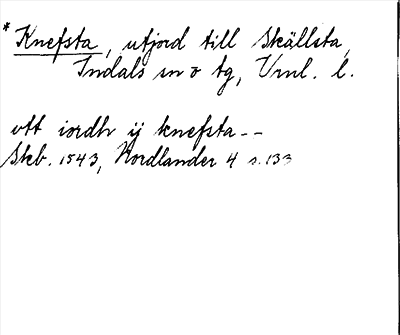 *Knefsta, utjord till Skällsta,
Indals sn o tg, Vrnl. l.
ott iordh ij knefsta--
Skb. 1543, Nordlander 4 s. 133